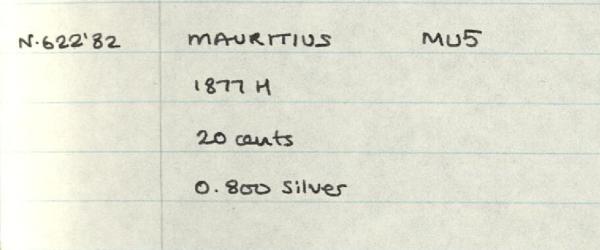 N.622'82 MAURITIUS MU5
1877 H
20 cents
0.800 Silver